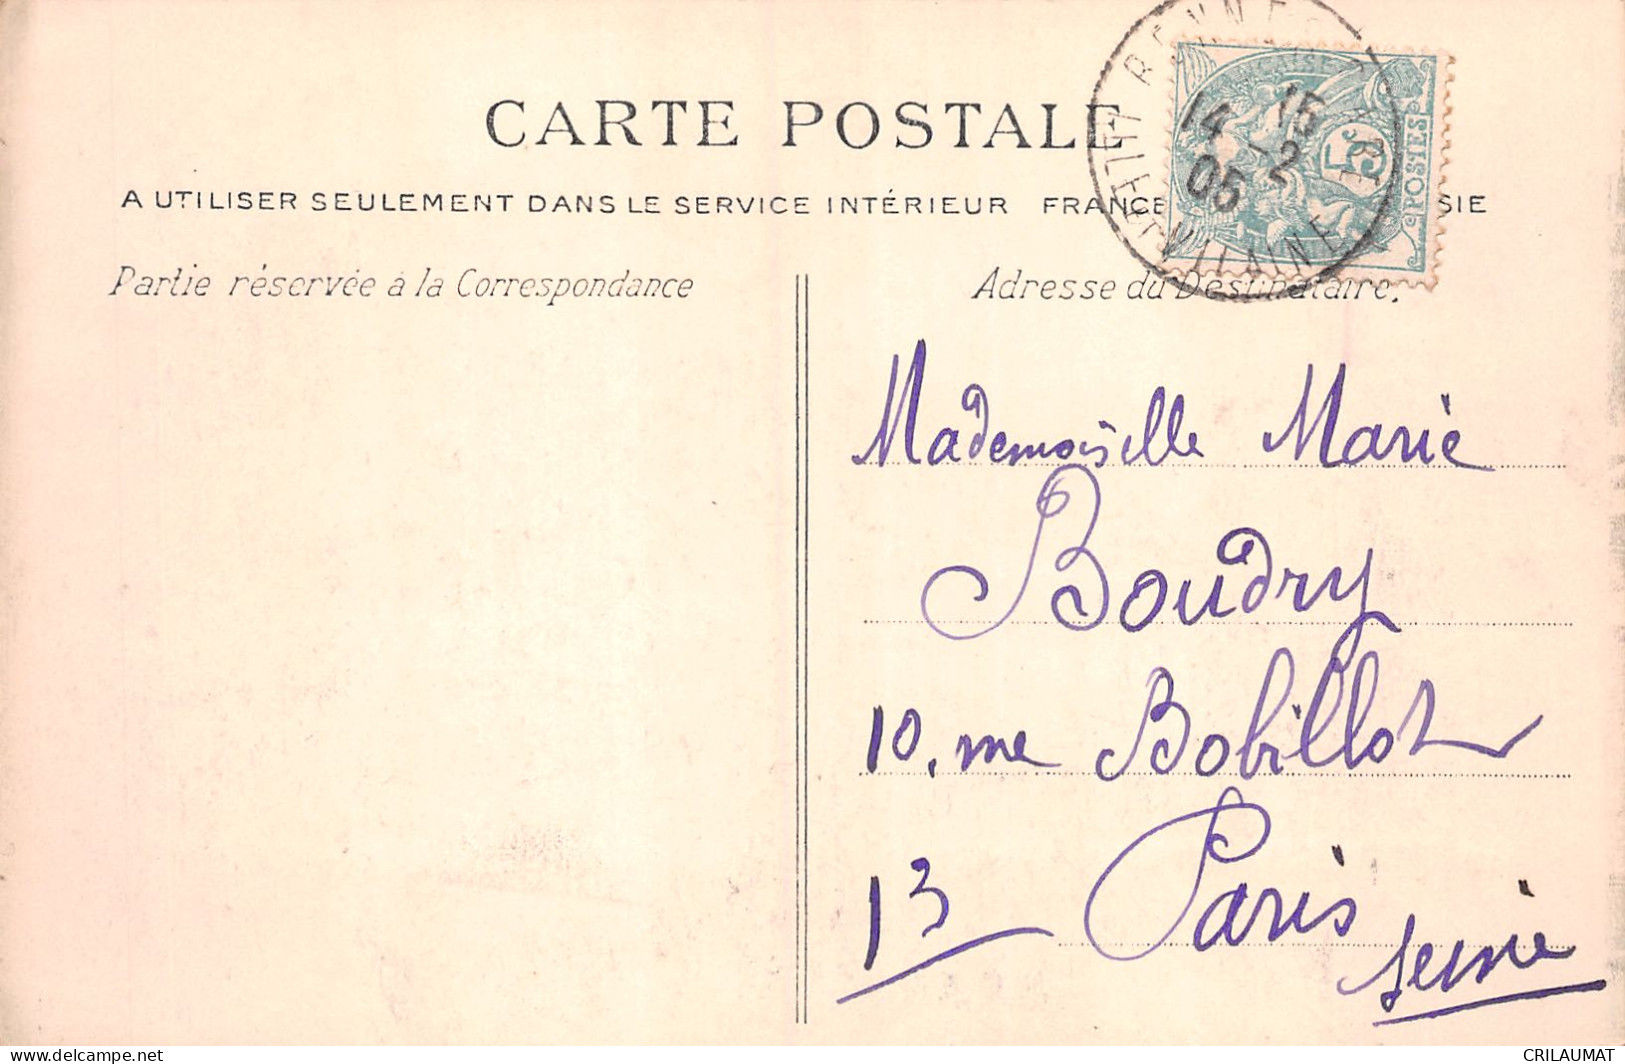 CARTE POSTALE
A UTILISER SEULEMENT DANS LE SERVICE INTÉRIEUR FRANCE SIE
Partie réservée à la Correspondance
Adresse du Destinataire.
RENNES
14 15
05 2
ILLE-ET-VILAINE
5
POSTES
Mademoiselle Marie
Boudry
10, rue Bobillot
13 Paris
Seine
delcampe.net
CRILAUMAT